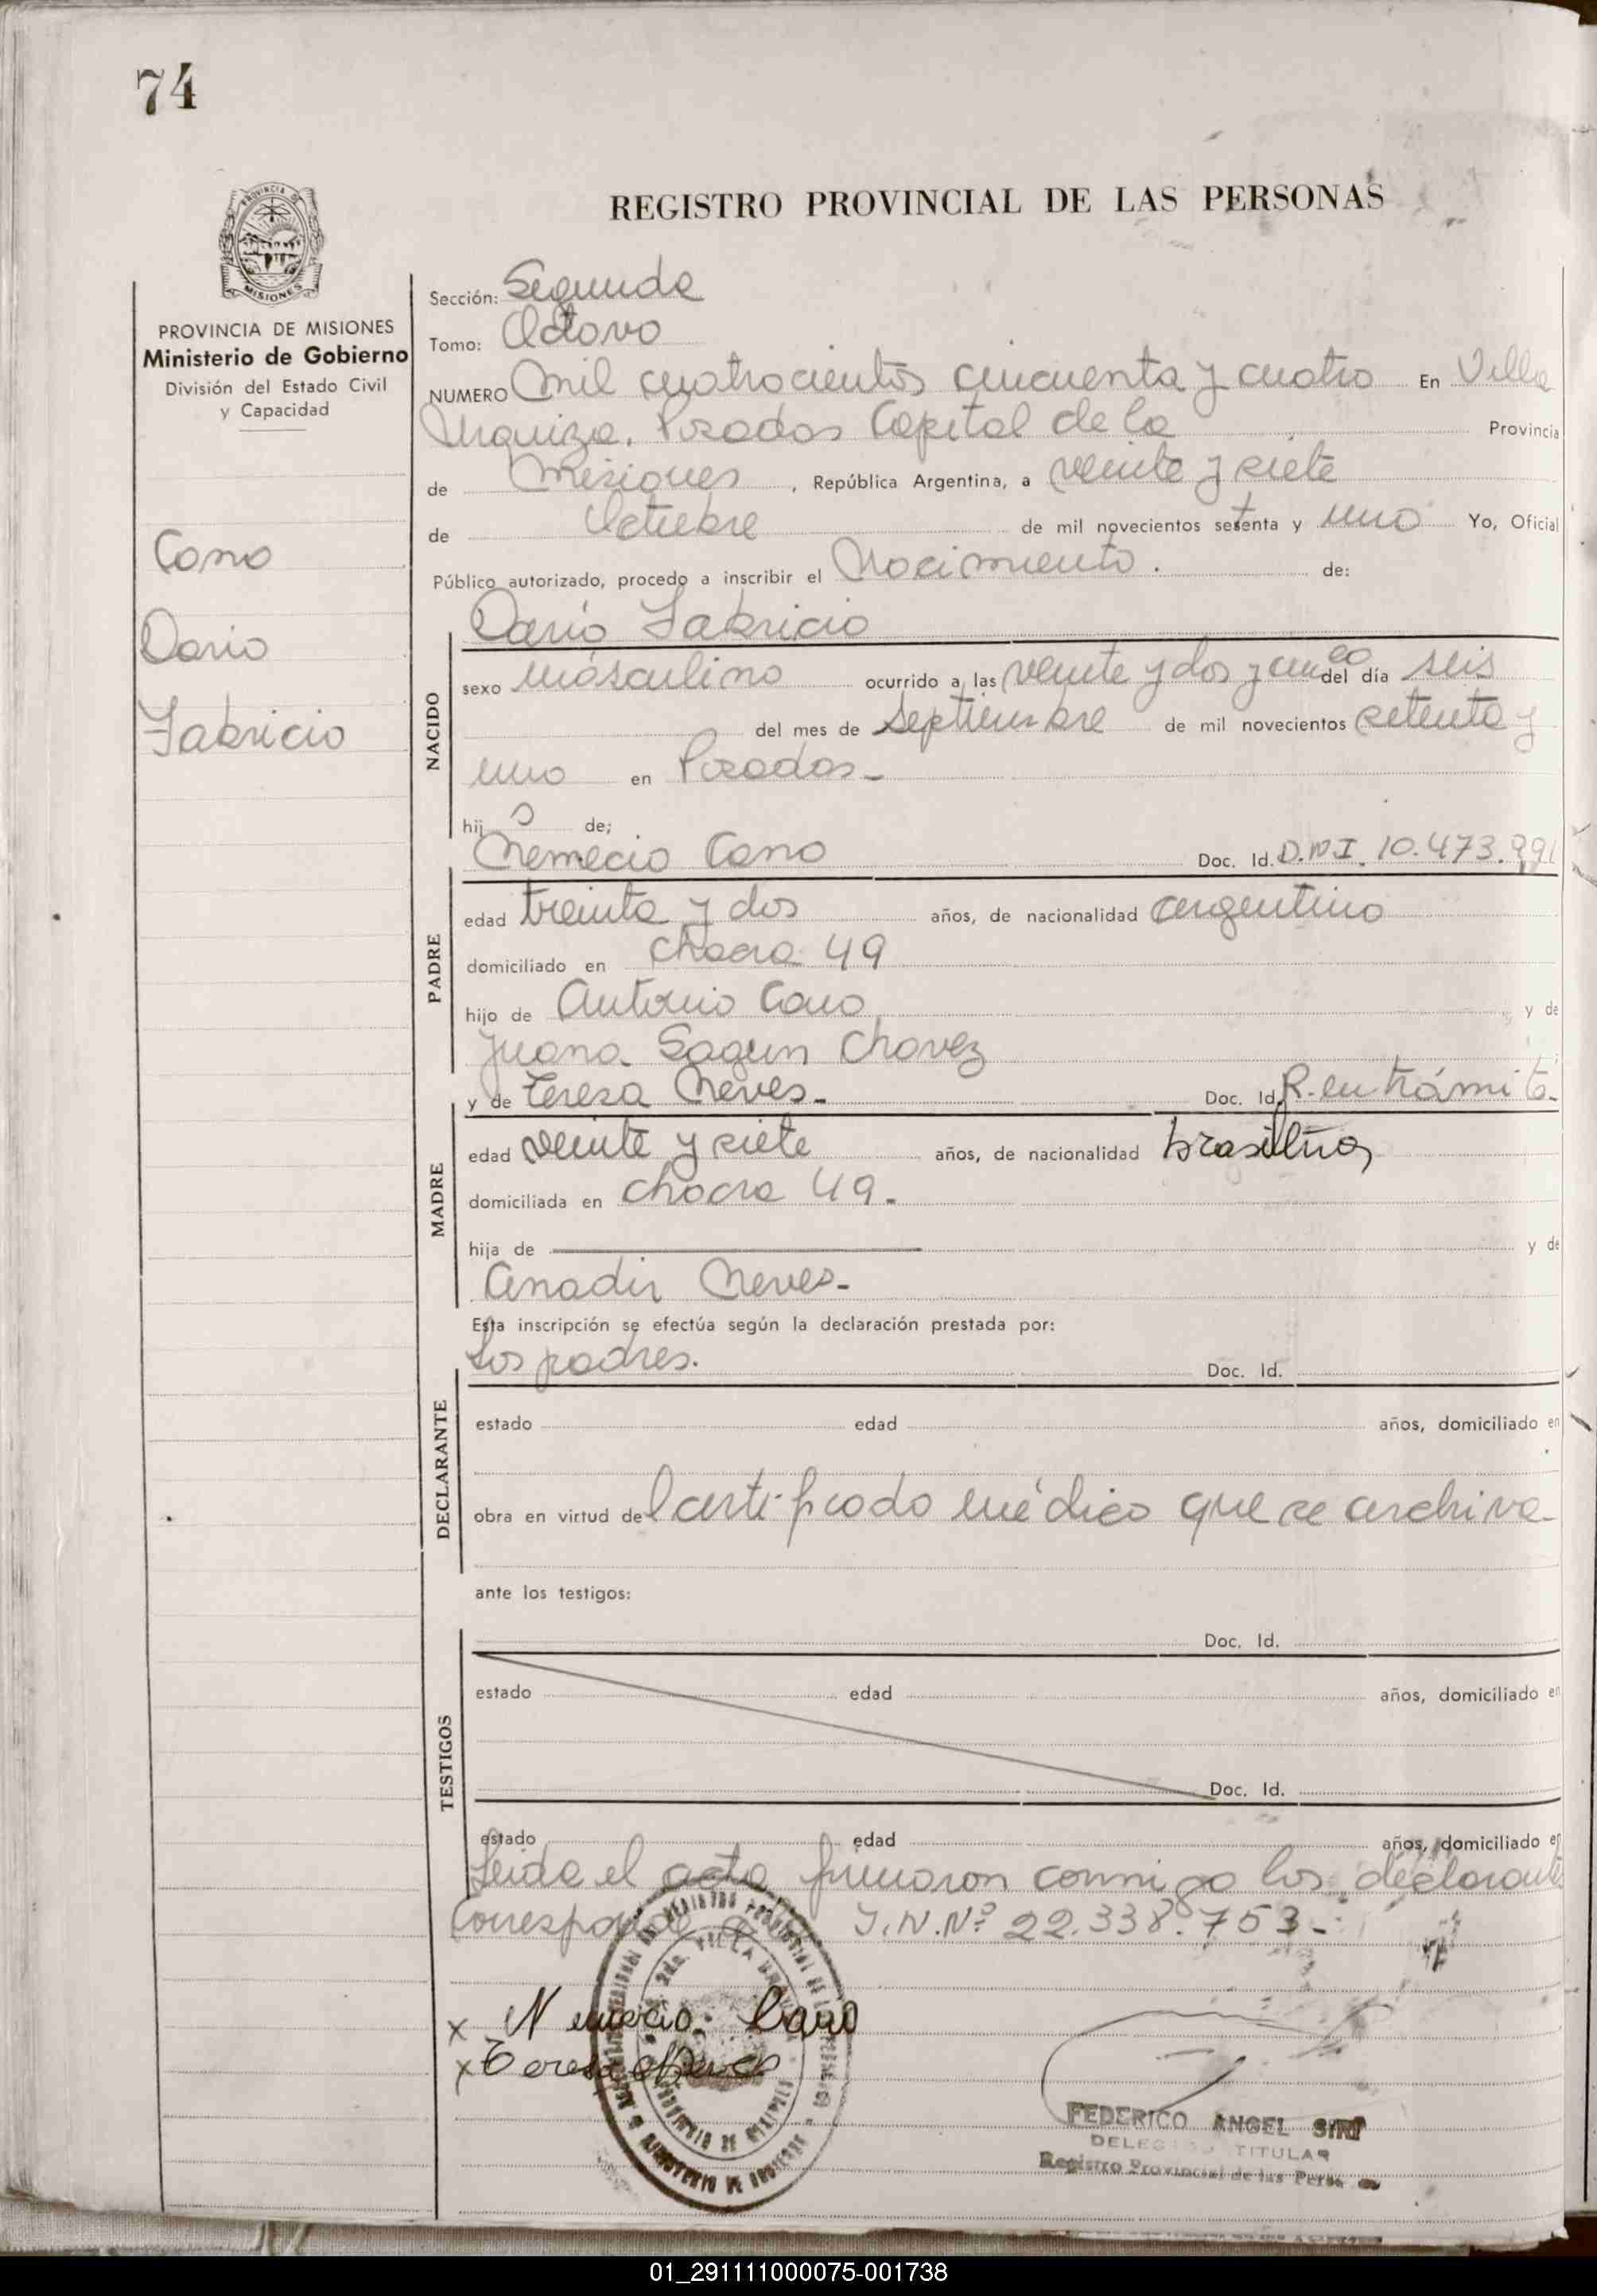 74
REGISTRO PROVINCIAL DE LAS PERSONAS
PROVINCIA DE MISIONES
Ministerio de Gobierno
División del Estado Civil
y Capacidad
Cano
Dario
Fabricio
Sección: Segunda
Tomo: Octavo
NUMERO Mil cuatrocientos cincuenta y cuatro En Villa
Urquiza, Posadas Capital de la Provincia
de Misiones, República Argentina, a veinte y siete
de Octubre de mil novecientos setenta y uno Yo, Oficial
Público autorizado, procedo a inscribir el Nacimiento. de:
Darío Fabricio
NACIDO
sexo masculino ocurrido a las veinte y dos y cinco del día seis
del mes de Septiembre de mil novecientos setenta y
uno en Posadas-
hijo de;
Nemecio Cano Doc. Id. D.N.I. 10.473.991
PADRE
edad treinta y dos años, de nacionalidad argentino
domiciliado en Chacra 49
hijo de Antonio Cano y de
Juana Chavez
y de Teresa Neves- Doc. Id. R. en trámite-
MADRE
edad veinte y siete años, de nacionalidad brasileña
domiciliada en chacra 49-
hija de y de
Anadir Neves-
Esta inscripción se efectúa según la declaración prestada por:
Los padres. Doc. Id.
DECLARANTE
estado edad años, domiciliado en
obra en virtud del certificado médico que se archiva-
ante los testigos:
Doc. Id.
TESTIGOS
estado edad años, domiciliado en
Doc. Id.
estado edad años, domiciliado en
Leida el acta firmaron conmigo los declarantes
Corresponde I.N.Nº 22.338.753-
x Nemecio Cano
x Teresa Neves
FEDERICO ANGEL SIRI
DELEGADO TITULAR
Registro Provincial de las Personas
01_291111000075-001738